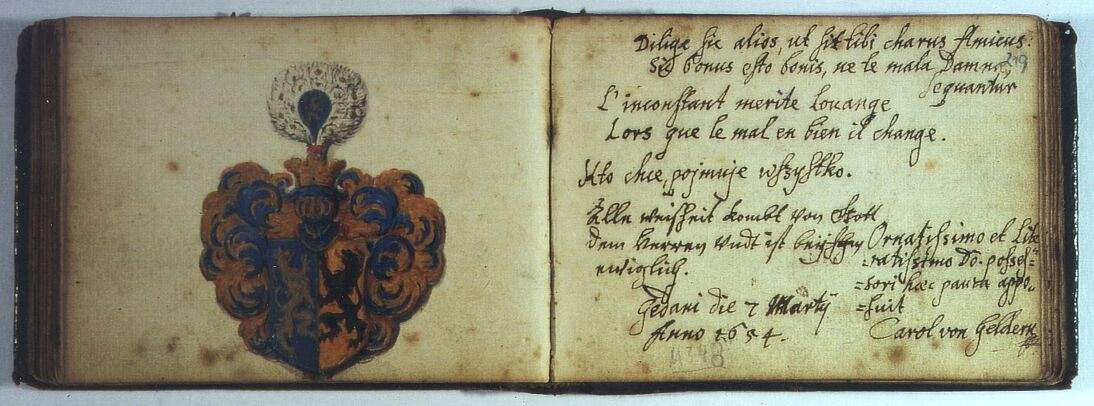 Dilige sic alios, ut sis tibi charus Amicus:
Sic bonus esto bonis, ne te mala Damna,
sequantur
219
L'inconstant merite louange
Lors que le mal en bien il change.
Kto chce, pojmuje wszystko.
Alle weisheit kombt von Gott
dem Herren Vndt ist bey ihm
ewiglich.
Gedani die 7 Martij
Anno 1654.
Ornatissimo et Lite-
=ratissimo Do. posses=
=sori hæc pauca appo=
=suit
Carol von Geldern